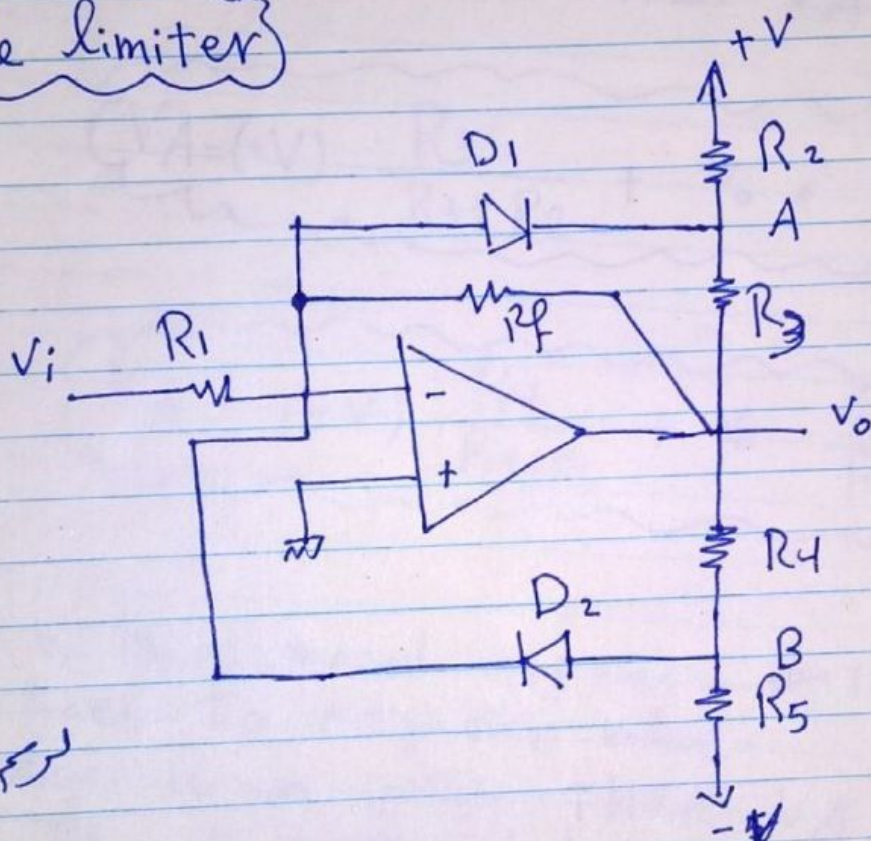 e limiter}
+V
R2
D1
A
Rf
R3
R1
Vi
-
Vo
+
R4
D2
B
R5
-V